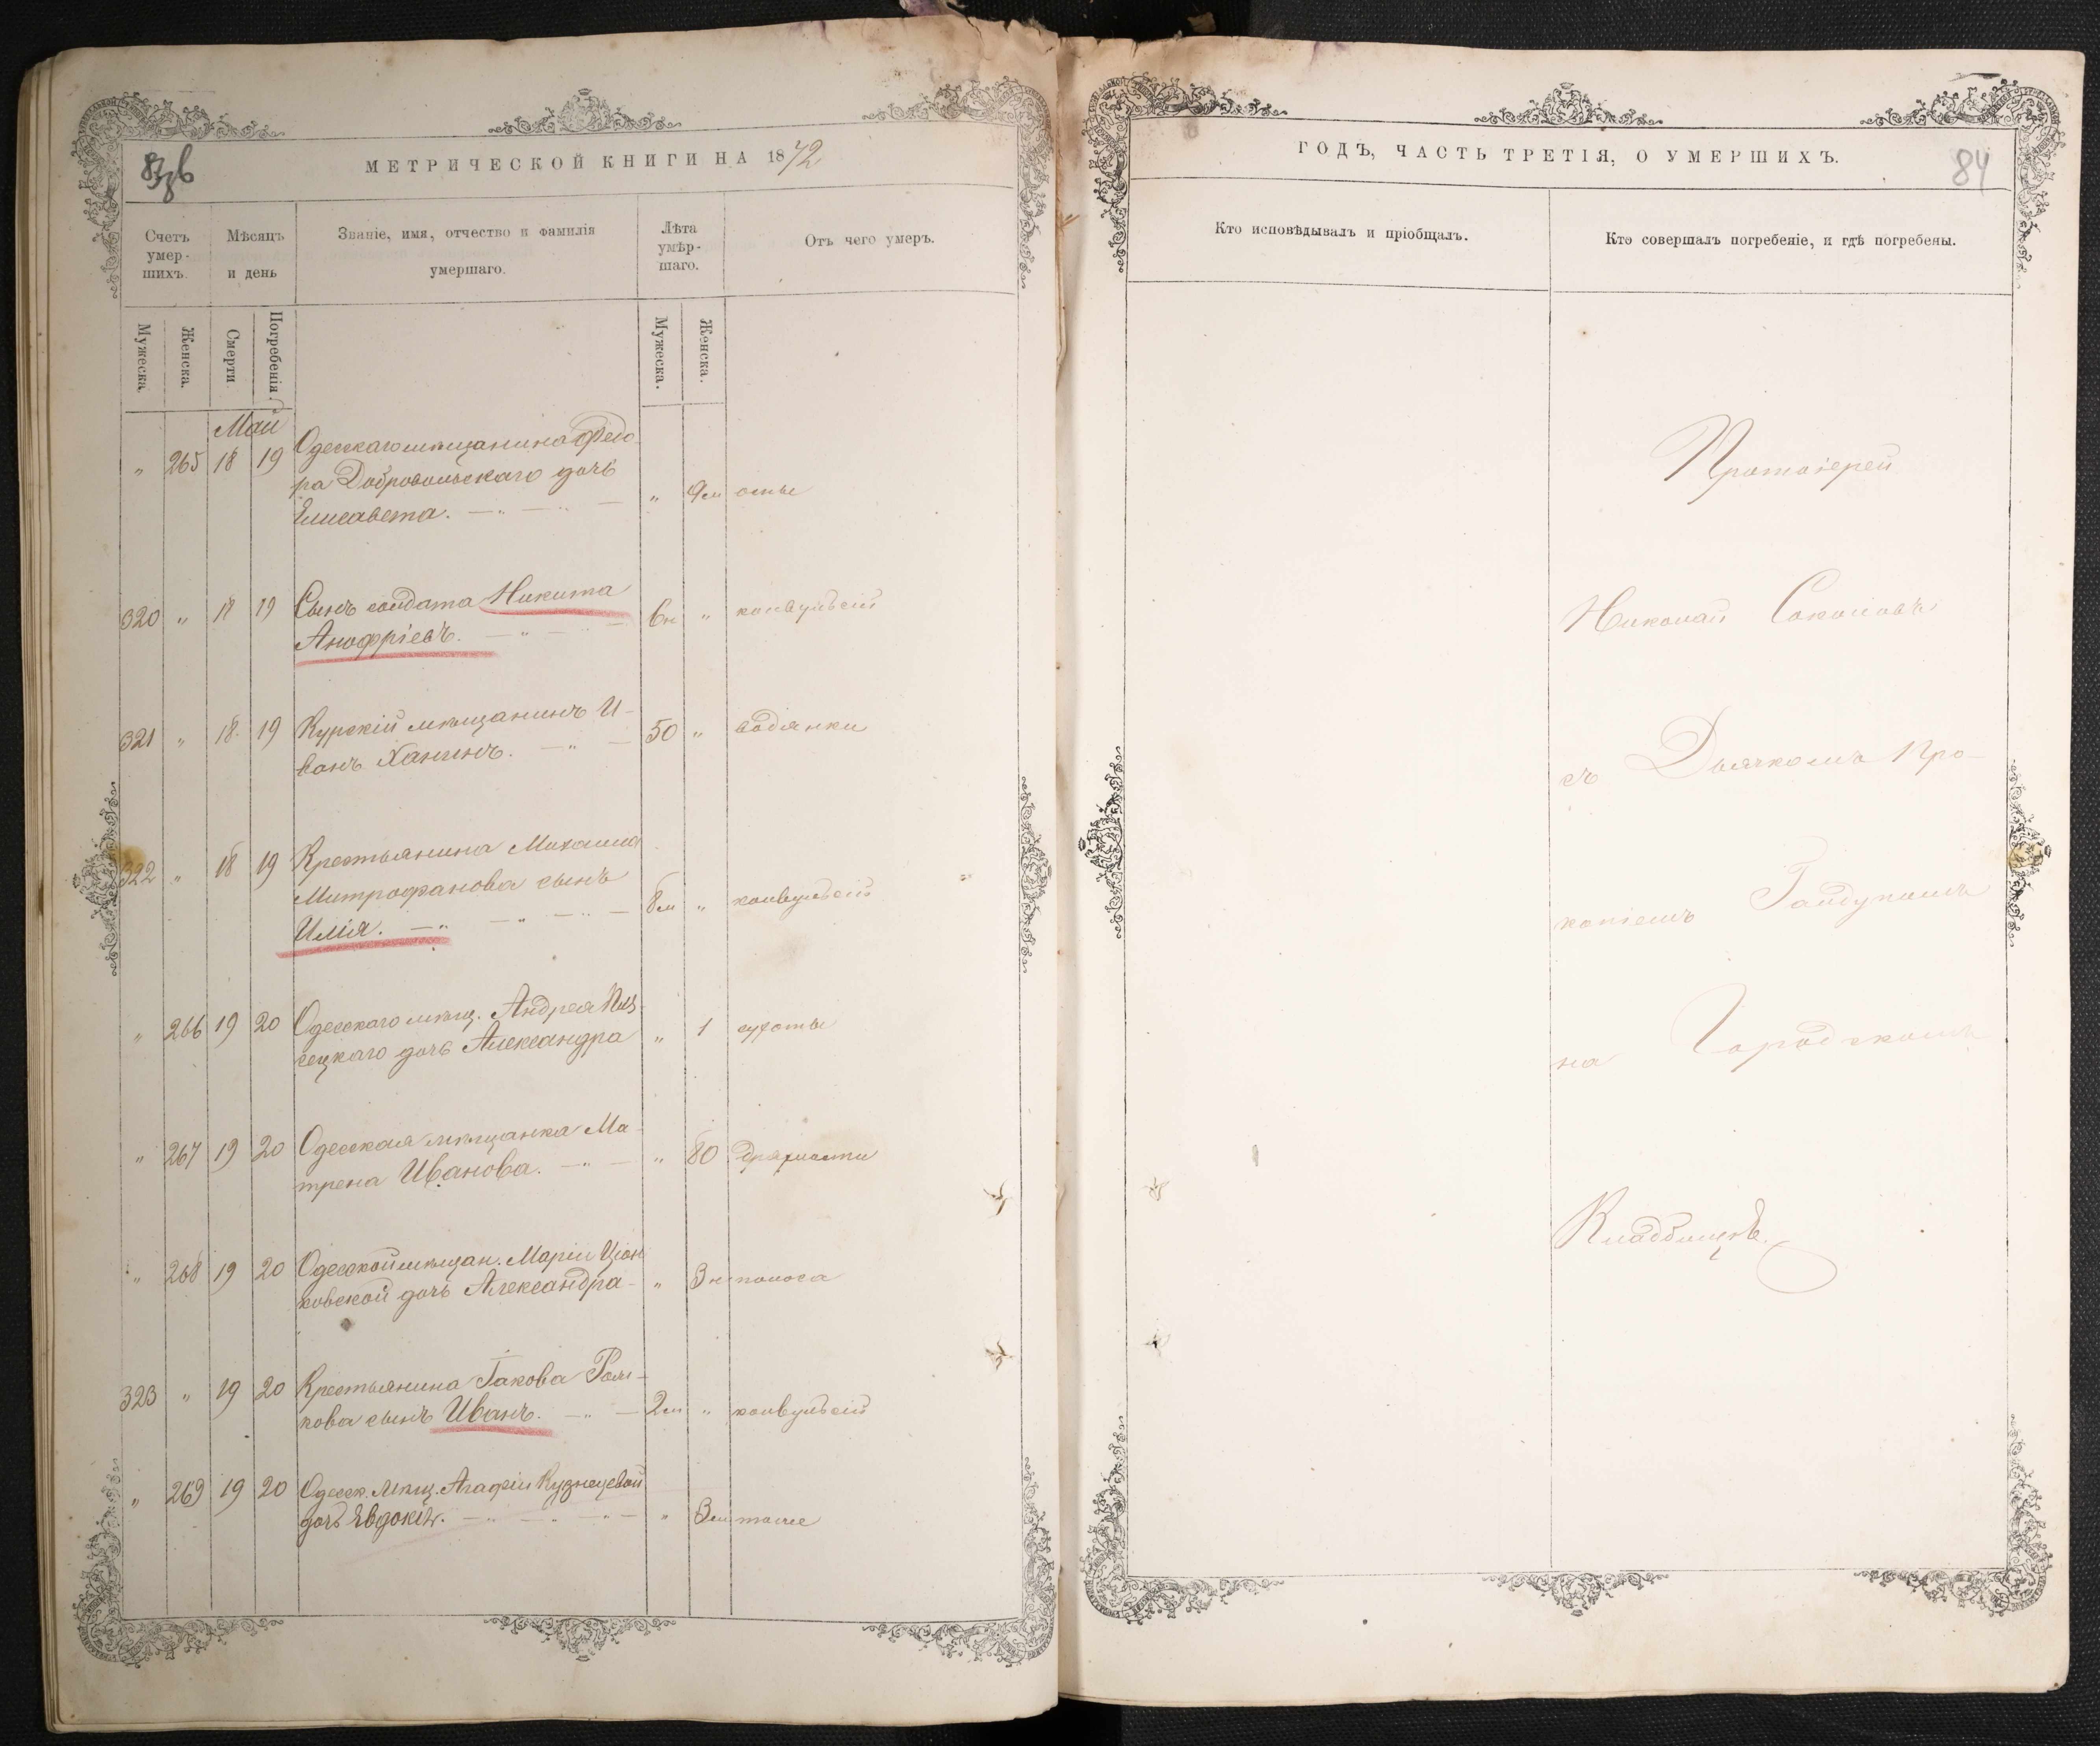 83в
МЕТРИЧЕСКОЙ КНИГИ НА 1872
Счетъ умер-шихъ.
Мѣсяцъ и день
Званіе, имя, отчество и фамилія умершаго.
Лѣта умѣр-шаго.
Отъ чего умеръ.
Мужеска.
Женска.
Смерти
Погребенія.
Мужеска.
Женска.
Май
" 265 18 19 Одесскаго мѣщанина Федо-
ра Добровольскаго дочь
Елисавета. " 9м оспы
320 " 18 19 Сынъ солдата Никита
Анофріевъ. 6н " конвульсій
321 " 18 19 Курскій мѣщанинъ И-
ванъ Ханинъ. 50 " водянки
322 " 18 19 Крестьянина Михаила
Митрофанова сынъ
Илія. 8м " конвульсій
" 266 19 20 Одесскаго мѣщ. Андрея
сецкаго дочь Александра " 1 сухоты
" 267 19 20 Одесская мѣщанка Ма-
трена Ивановa. " 80 дряхлости
" 268 19 20 Одесской мѣщан. Маріи
ковской дочь Александра " 3н поноса
323 " 19 20 Крестьянина Іакова
кова сынъ Иванъ. 2м " конвульсій
" 269 19 20 Одесск. мѣщ. Агафіи Кузнецевой
дочь Евдокія. " 3м тоже
84
ГОДЪ, ЧАСТЬ ТРЕТІЯ, О УМЕРШИХЪ.
Кто исповѣдывалъ и пріобщалъ.
Кто совершалъ погребеніе, и гдѣ погребены.
Протоіерей
Николай Соколовъ
съ Дьячкомъ Про-
копіемъ
на Городскомъ
Кладбищѣ.